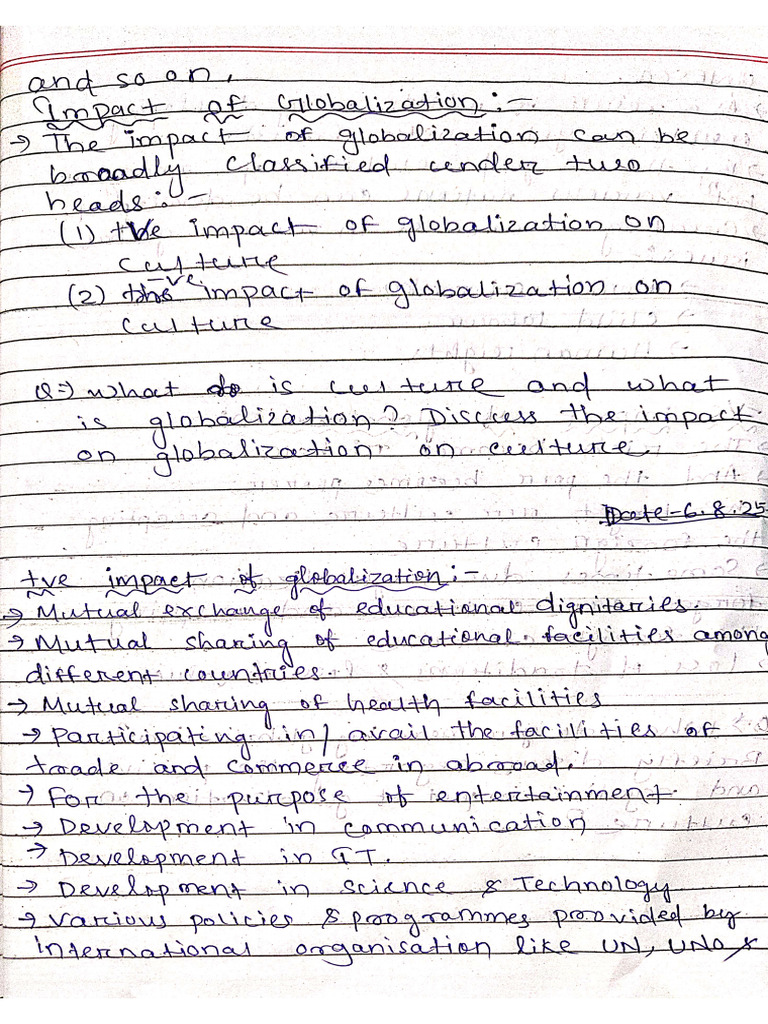 and so on.
Impact of Globalization :-
→ The impact of globalization can be
broadly classified under two
heads :-
(1) +ve impact of globalization on
culture
(2) -ve impact of globalization on
culture
Q⇒ What is culture and what
is globalization? Discuss the impact
on globalization on culture.
Date-6.8.25
+ve impact of globalization :-
→ Mutual exchange of educational dignitaries.
→ Mutual sharing of educational facilities among
different countries.
→ Mutual sharing of health facilities
→ Participating in/ avail the facilities of
trade and commerce in abroad.
→ For the purpose of entertainment.
→ Development in communication
→ Development in IT.
→ Development in Science & Technology
→ Various policies & programmes provided by
international organisation like UN, UNO